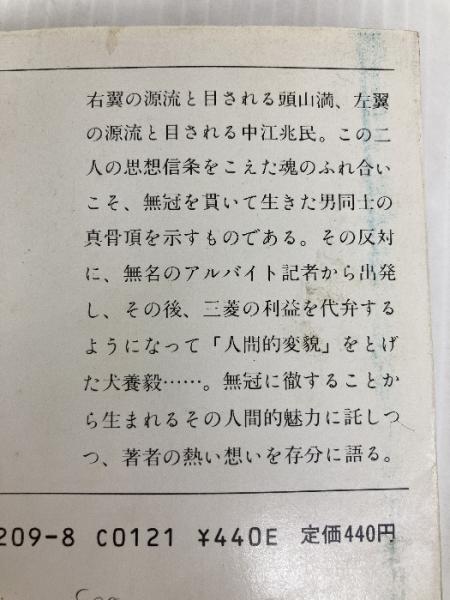 右翼の源流と目される頭山満、左翼
の源流と目される中江兆民。この二
人の思想信条をこえた魂のふれ合い
こそ、無冠を貫いて生きた男同士の
真骨頂を示すものである。その反対
に、無名のアルバイト記者から出発
し、その後、三菱の利益を代弁する
ようになって「人間的変貌」をとげ
た犬養毅……。無冠に徹することか
ら生まれるその人間的魅力に託しつ
つ、著者の熱い想いを存分に語る。
209-8 C0121 ¥440E 定価440円